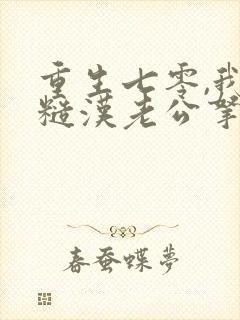 重生七零,我
糙漢老公寧
春蚕蝶夢